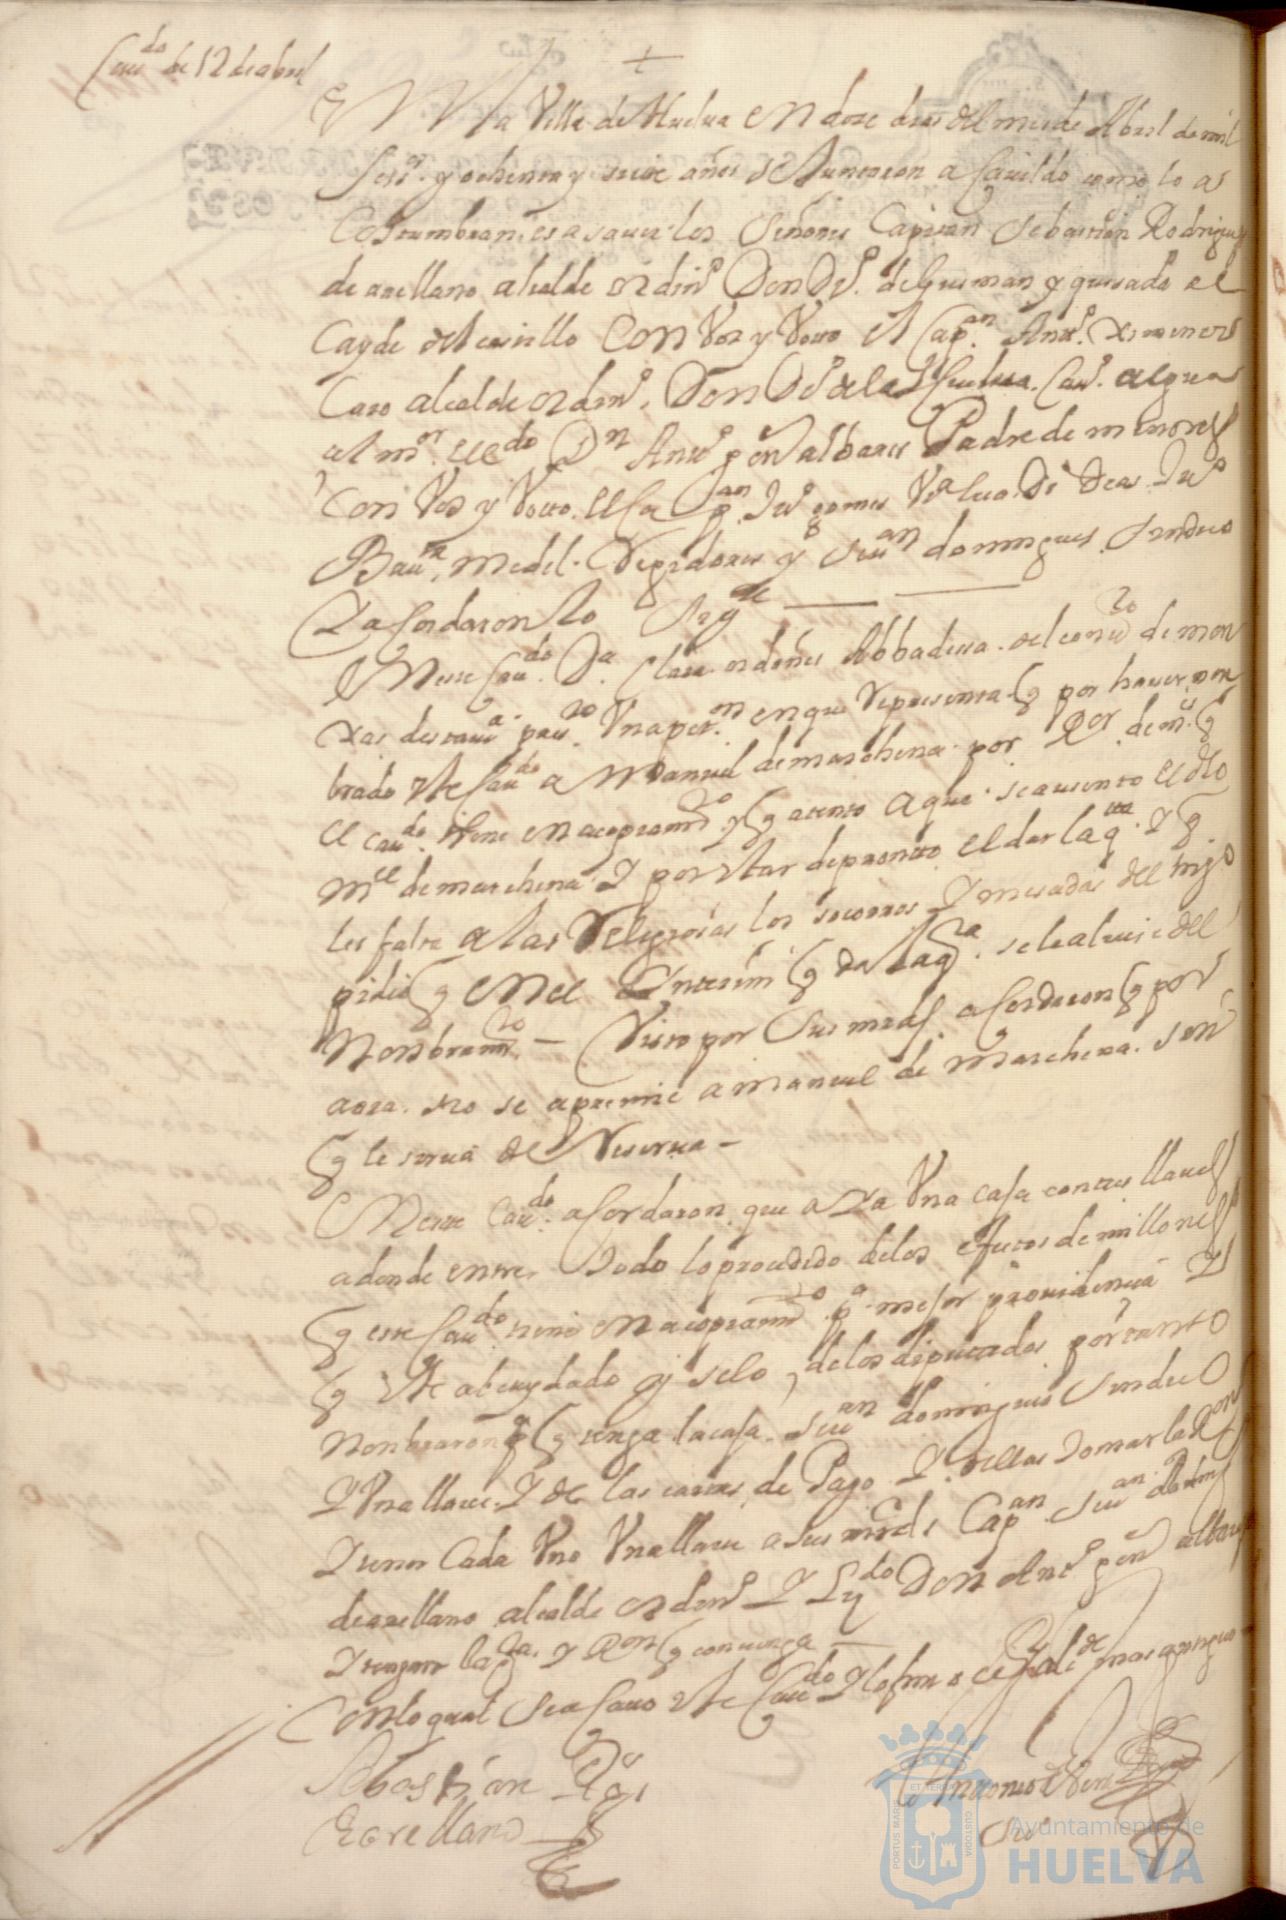 Cau^do de 12 de abril
+
En la Villa de Huelva en doze dias del mes de Abril de mill
seis^os y ochenta y siete años se Juntaron a Cauildo como lo a
Costumbran es a sauer los Señores Capitan Sebastian Rodriguez
de arellano alcalde ordin^o Don D^o de Guzman y quesada al
Cayde del castillo Con Voz y Voto el Cap^an Ant^o Ximenez
Caro alcalde ordin^o Don D^o de la Cau^o algua
zil m^or lic^do D^n Ant^o albarez Padre de menores
Con Voz y Voto el Cap^an Ju^o gomez Ju^o
Bau^ta Medel Regidores y Seu^an domingues Sindico
Y acordaron lo sig^te
En este Cau^do D^a Clara ordoñes Abbadesa del conu^to de mon
xas desta uilla pres^to Vna pet^on en que Representa q por hauer nom
brado este Cau^do a Manuel de marchena por R^or de m^es q
el cau^do tiene en acopiam^to y q atento a que se ausento el dho
M^el de marchena Y por estar de pronto el dar la q^ta Y q
les falta a las Religiosas los socorros Y mesadas del trigo
pidio q en el Ynterim q da la q^ta se le aliuie del
Nonbram^to – Visto por Sus mrds acordaron q por
aora no se apremie a Manuel de Marchena sin
q le sirua de Reserua –
En este Cau^do acordaron que aya Vna casa con tres llaues
adonde entre todo lo prosedido de los efectos de millones
q este Cau^do tiene en acopiam^to p^a mejor prouidencia Y
q este al cuydado y selo de los diputados por tanto
Nonbraron p^a q tenga la casa Seu^an domingues Sindico
Y Vna llaue Y de las cartas de Pago Y dellas tomar la R^on
Y tener Cada Vno Vna llaue a sus mrds Cap^an Seu^an
de arellano alcalde ordin^o Y Ly^do Don Ant^o albarez
Y tengan la q^ta y Ron q conuenga
Con lo qual se acauo este Cau^do Y lo firmo el alc^de mas antiguo
Sebastian R^os
de arellano
Antonio de
Ayuntamiento de
HUELVA
PORTUS MARIS
ET TERRAE
CUSTODIA